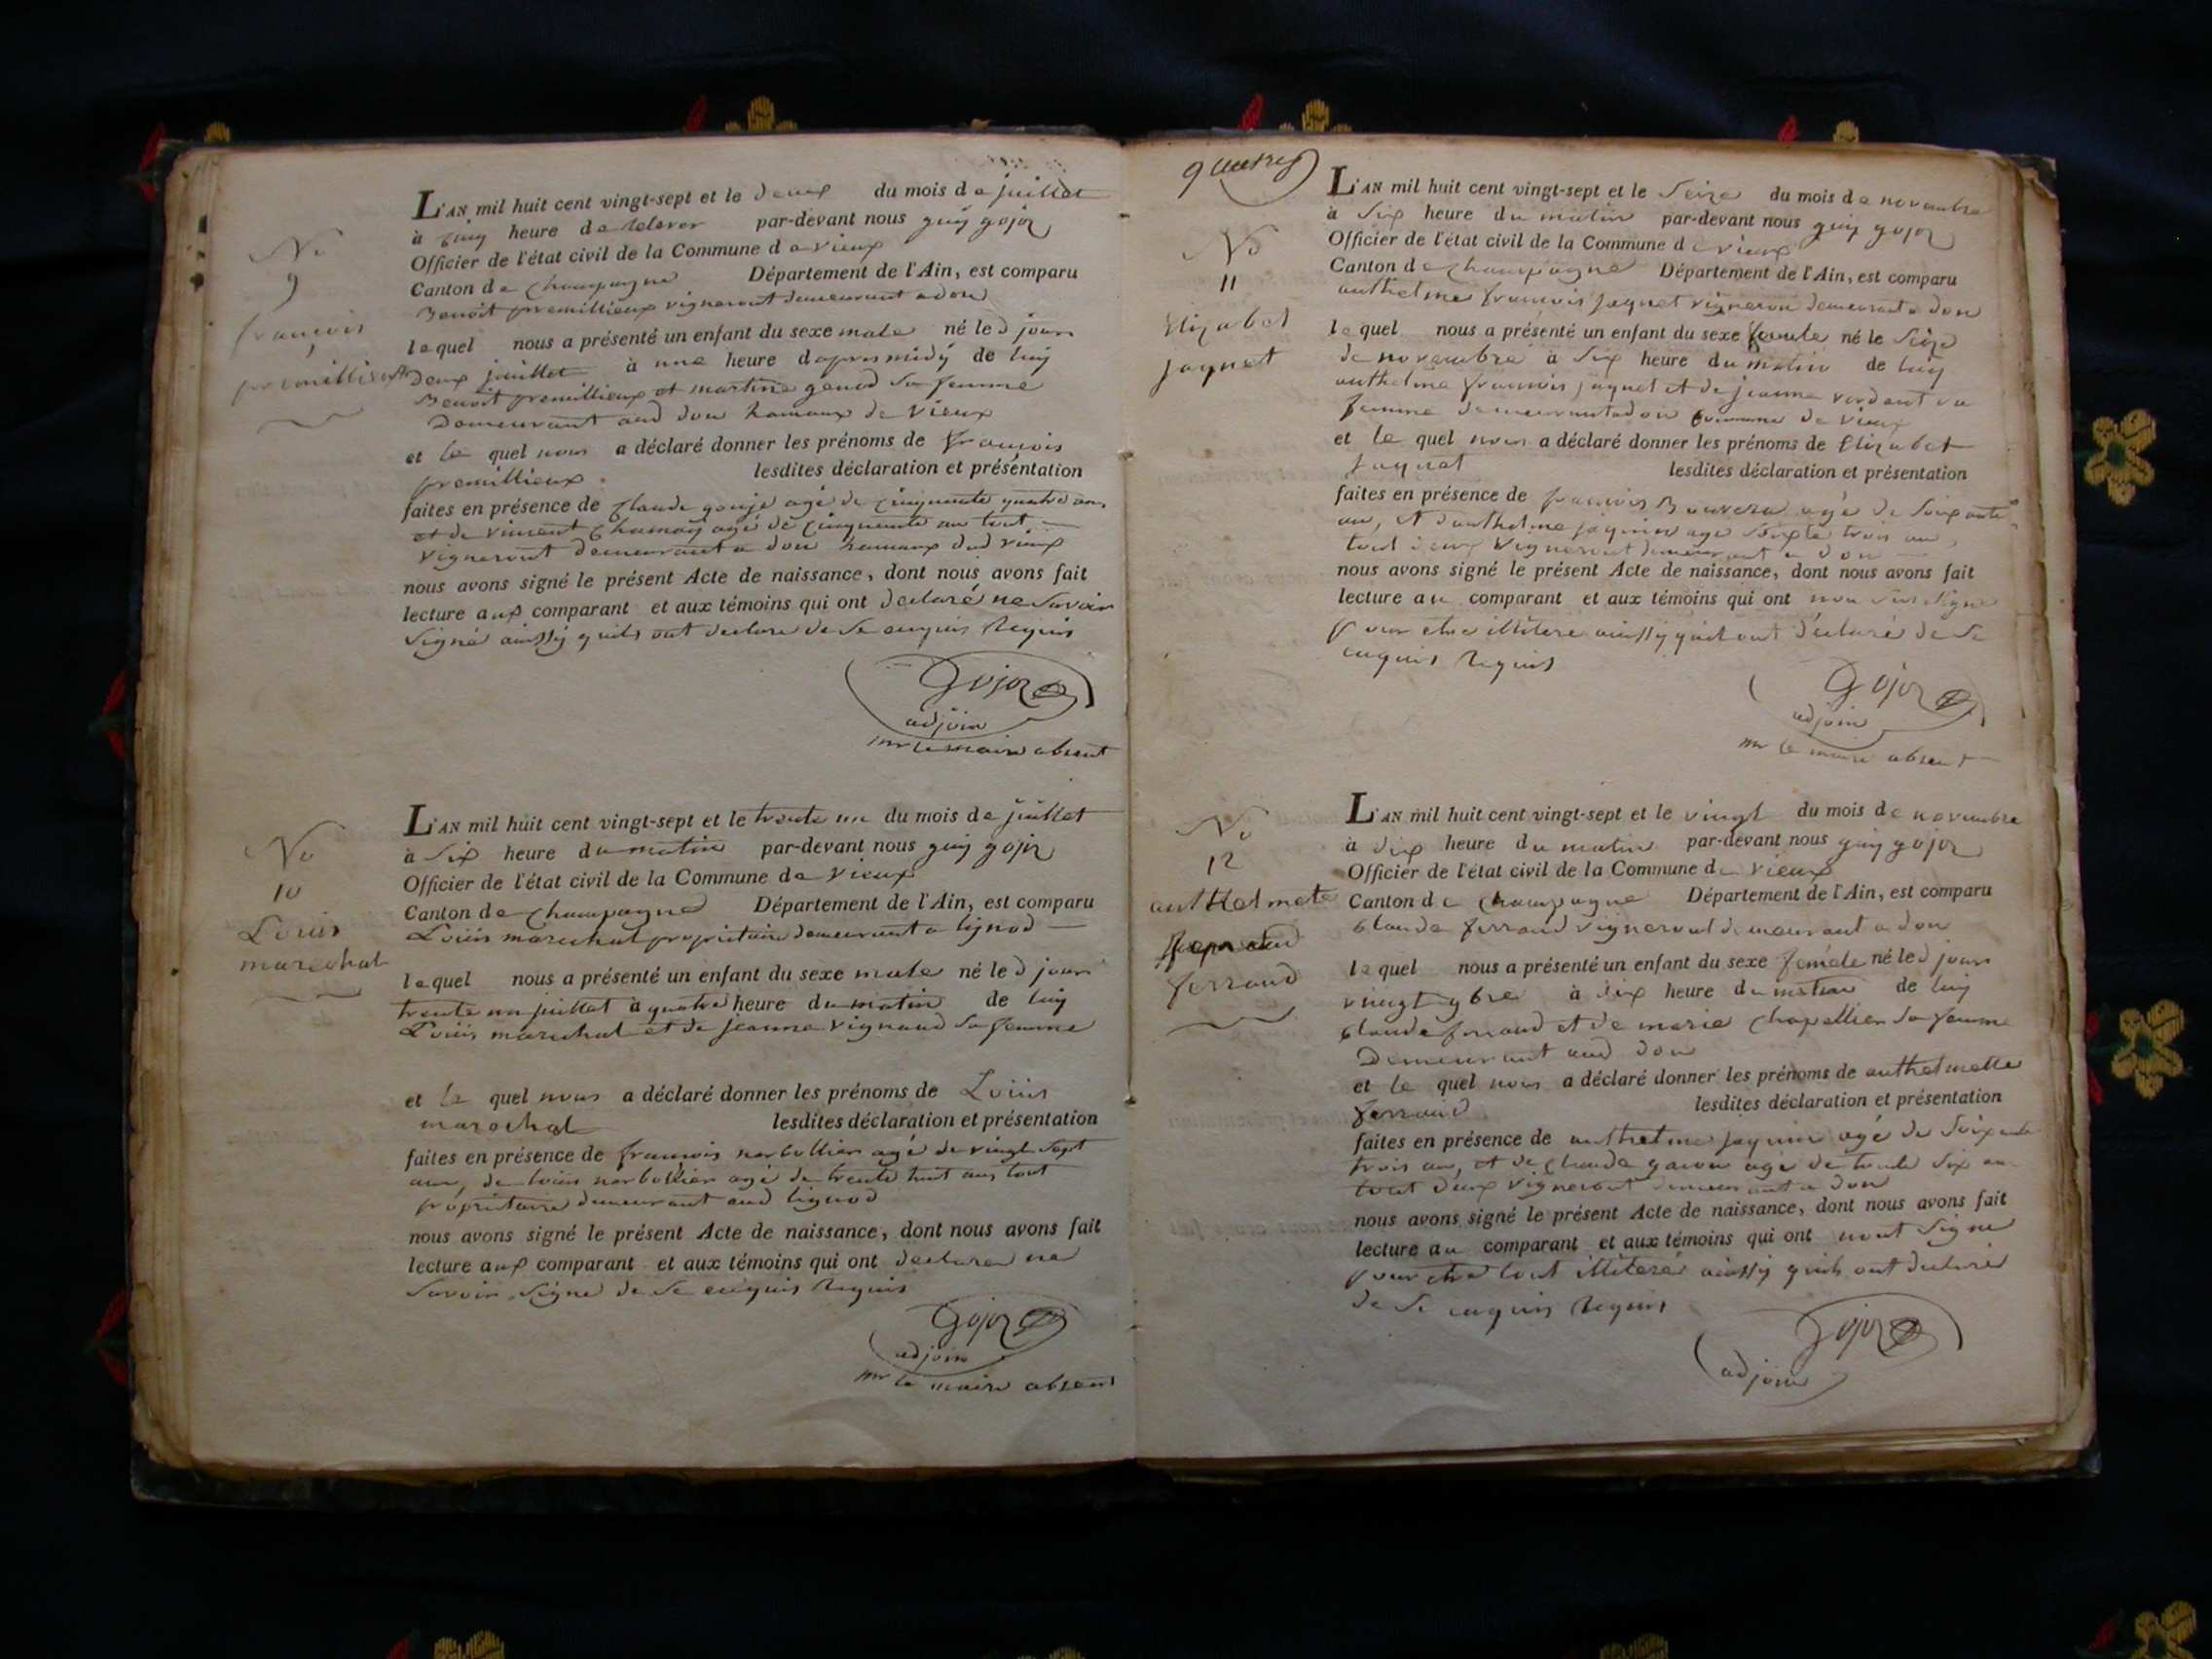 No
9
françois
premillieux
L'AN mil huit cent vingt-sept et le deux du mois de juillet
à cinq heure de relever par-devant nous guy gojoz
Officier de l'état civil de la Commune de vieux
Canton de Champagne Département de l'Ain, est comparu
Benoit premillieux vigneront demeurant a don
lequel nous a présenté un enfant du sexe male né led jours
deux juillet à une heure dapres midy de luy
Benoit premillieux et martine genod sa femme
Demeurant aud don hamaux de vieux
et le quel nous a déclaré donner les prénoms de françois
premillieux lesdites déclaration et présentation
faites en présence de Claude gouje agé de cinquante quatre ans
et de vincent Chamoy agé de cinquante an tout
vigneront demeurant a don hamaux dud vieux
nous avons signé le présent Acte de naissance, dont nous avons fait
lecture aux comparant et aux témoins qui ont declaré ne savoir
signé ainssy quils ont declare de se enquis Requis
Gojoz
adjoin
mr le maire absent
No
10
Louis
marechal
L'AN mil huit cent vingt-sept et le trente un du mois de juillet
à six heure du matin par-devant nous guy gojoz
Officier de l'état civil de la Commune de vieux
Canton de Champagne Département de l'Ain, est comparu
Louis marechal proprietaire demeurant a lignod
lequel nous a présenté un enfant du sexe male né led jours
trente un juillet à quatre heure du matin de luy
Louis marechal et de jeanne vignaud sa femme
et le quel nous a déclaré donner les prénoms de Louis
marechal lesdites déclaration et présentation
faites en présence de francois narbollier agé de vingt sept
ans, de louis narbollier agé de trente huit ans tout
proprietaire demeurant aud lignod
nous avons signé le présent Acte de naissance, dont nous avons fait
lecture aux comparant et aux témoins qui ont declare ne
savoir signe de se enquis Requis
Gojoz
adjoin
mr le maire absent
No
11
Elizabet
jaquet
L'AN mil huit cent vingt-sept et le Seize du mois de novembre
à six heure du matin par-devant nous guy gojoz
Officier de l'état civil de la Commune de vieux
Canton de Champagne Département de l'Ain, est comparu
anthelme francois jaquet vigneron demeurant a don
lequel nous a présenté un enfant du sexe femele né le Seize
de novembre à six heure du matin de luy
anthelme francois jaquet et de jeanne
femme demeurant a don commune de vieux
et le quel nous a déclaré donner les prénoms de Elizabet
jaquet lesdites déclaration et présentation
faites en présence de francois agé de soixante
an, et d'anthelme jaquin age trois an
tout deux vigneront demeurant a don
nous avons signé le présent Acte de naissance, dont nous avons fait
lecture au comparant et aux témoins qui ont signe
pour etre illitere ainssy quil ont déclaré de se
enquis Requis
Gojoz
adjoin
mr le maire absent
No
12
anthelmete
ferraud
L'AN mil huit cent vingt-sept et le vingt du mois de novembre
à dix heure du matin par-devant nous guy gojoz
Officier de l'état civil de la Commune de vieux
Canton de Champagne Département de l'Ain, est comparu
Claude ferraud vigneront demeurant a don
lequel nous a présenté un enfant du sexe femele né led jours
vingt 9bre à six heure du matin de luy
Claude ferraud et de marie Chapellier sa femme
Demeurant aud don
et le quel nous a déclaré donner les prénoms de anthelmette
ferraud lesdites déclaration et présentation
faites en présence de anthelme jaquin agé de soixante
trois an, et de Claude agé de trente six an
tout deux vigneront demeurant a don
nous avons signé le présent Acte de naissance, dont nous avons fait
lecture au comparant et aux témoins qui ont nont signe
pour etre tout illiteré ainssy quils ont declaré
de se enquis Requis
Gojoz
adjoin